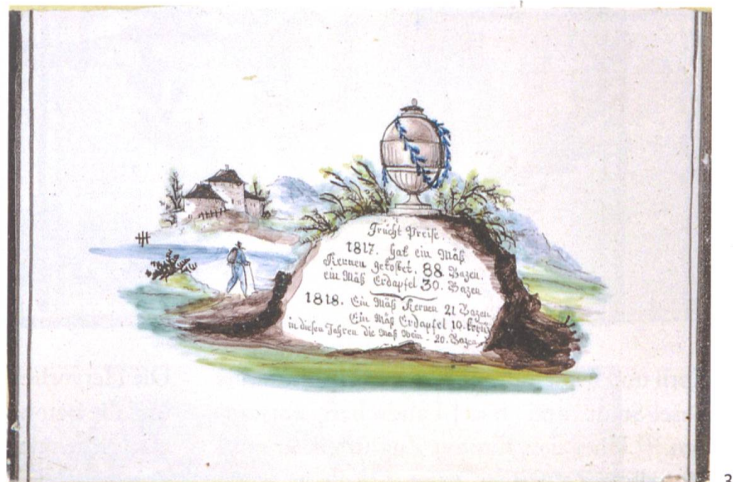 Frücht Preise.
1817. hat ein Mäß
Kernen gekostet. 88 Bazen.
ein Mäß Erdapfel 30. Bazen
1818. Ein Mäß Kernen 21 Bazen
Ein Mäß Erdapfel 10.
in diesen Jahren die Maß Wein. 20. Bazen
3